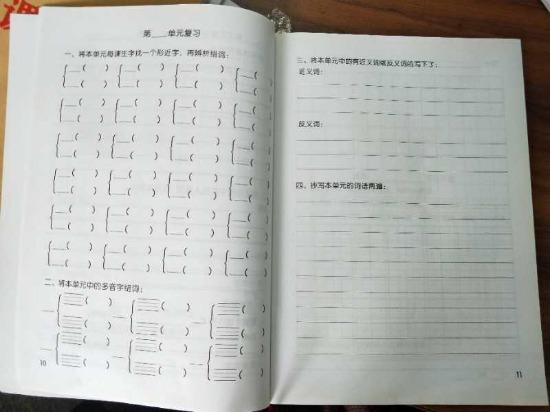 第____单元复习
一、将本单元每课生字找一个形近字，再辨析组词：
二、将本单元中的多音字组词：
10
三、将本单元中的有近义词或反义词的写下了：
近义词：
反义词：
四、抄写本单元的词语两遍：
11